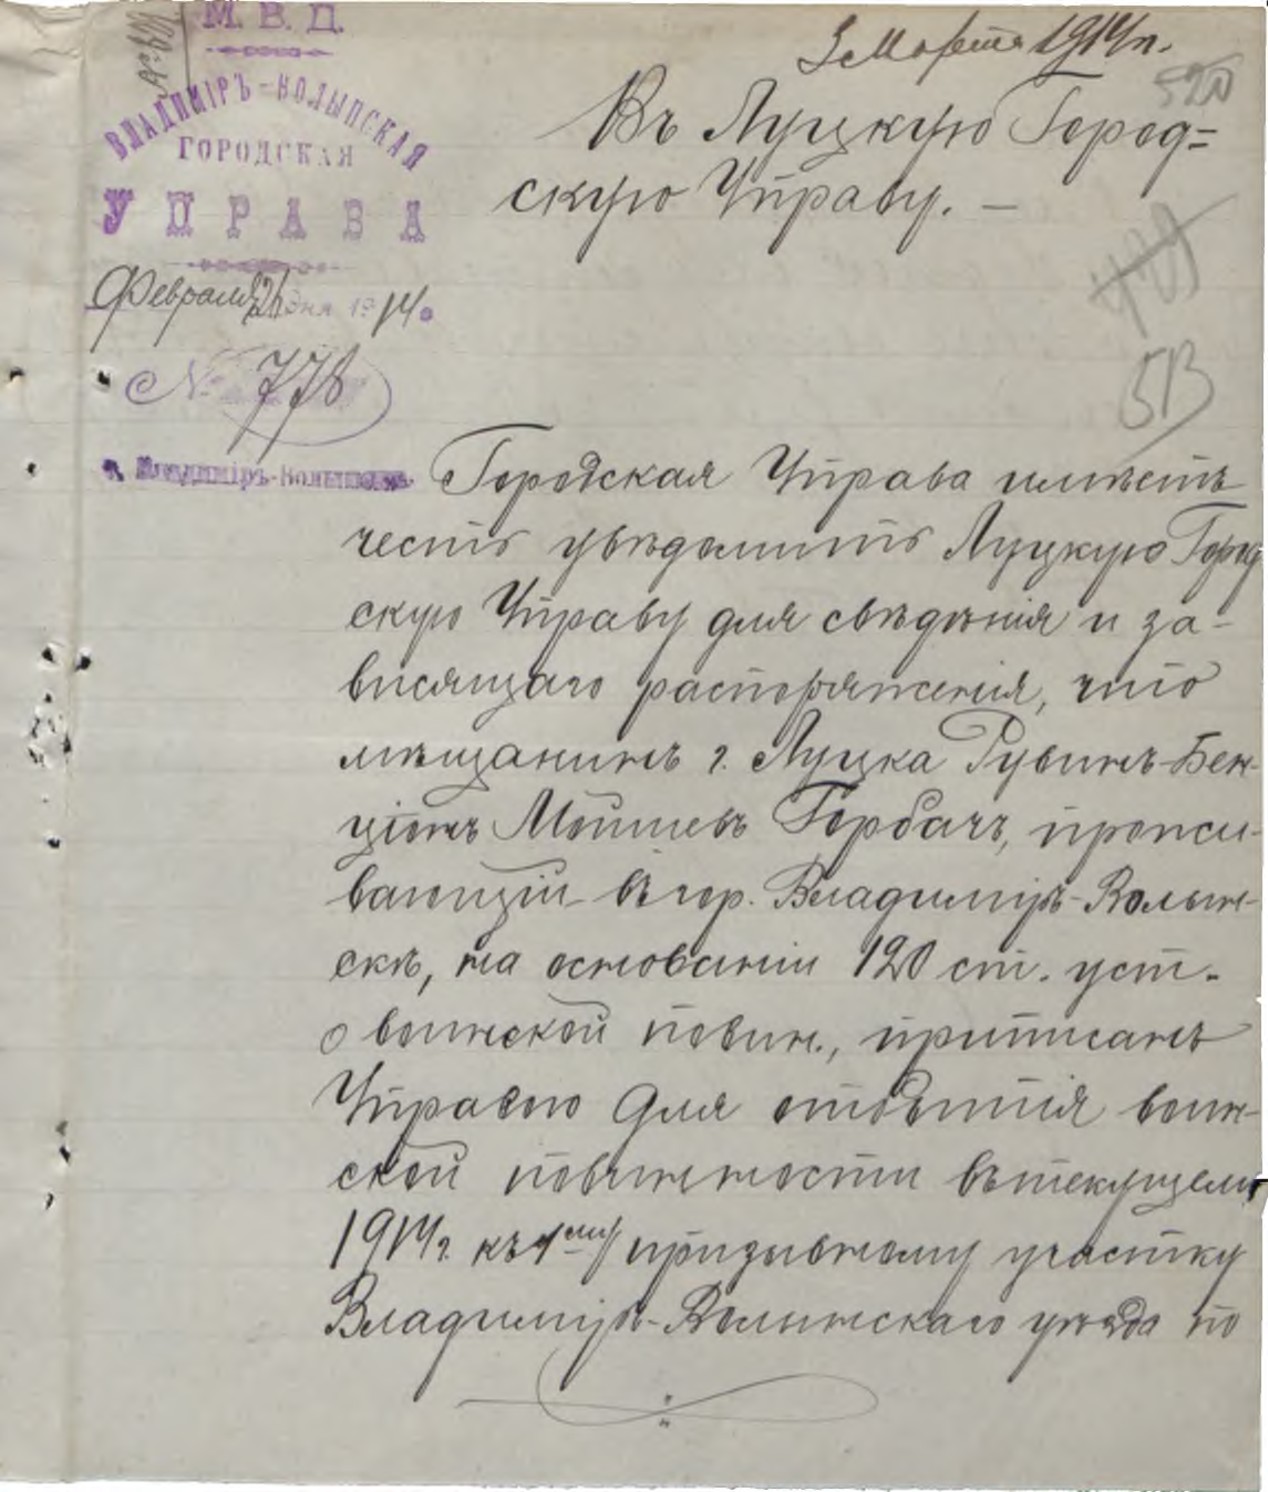 М. В. Д.
ВЛАДИМІРЪ-ВОЛЫНСКАЯ
ГОРОДСКАЯ
УПРАВА
Февраля 26 дня 1914 г.
№ 778
г. Владиміръ-Волынскъ
3 Марта 1914 г.
520
Въ Луцкую Город=
скую Управу. —
429
513
Городская Управа имѣетъ
честь увѣдомить Луцкую Город
скую Управу для свѣдѣнія и за-
висящаго распоряженія, что
мѣщанинъ г. Луцка Рувинъ-Бен-
ціонъ Мойшевъ Горбачъ, прожи-
вающій въ гор. Владимірѣ-Волын-
скѣ, на основаніи 120 ст. уст.
о воинской повин., приписанъ
Управою для отбытія воин-
ской повинности въ текущемъ
1914 г. къ 1му призывному участку
Владиміръ-Волынскаго уѣзда по